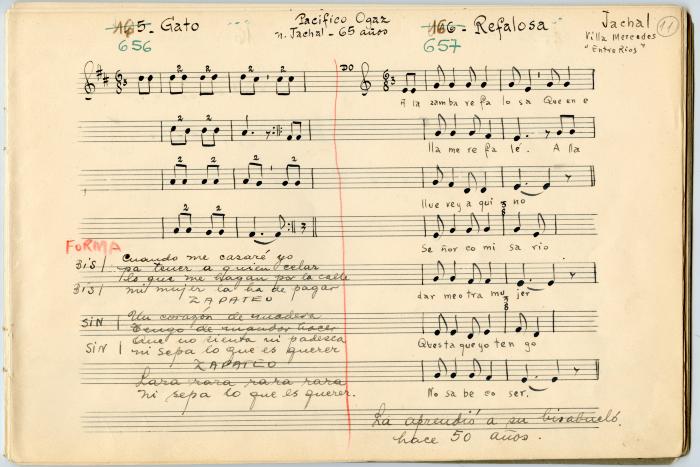 165 - Gato
656
Pacífico Ogaz
n. Jachal - 65 años
166 - Refalosa
657
Jachal
Villa Mercedes
"Entre Rios"
11
DO
A la zamba re fa lo sa Que en e
lla me re fa lé. A lla
llue vey a qui no
Se ñor co mi sa rio
dar meotra mu jer
Questa queyo ten go
No sa be co ser.
FORMA
BIS | Cuando me casaré yo
pa tener a quien celar
lo que me hagan por la calle
BIS | mi mujer la ha de pagar
ZAPATEO
SIN | Un corazón de madera
Tengo de mandar hacer
Que no sienta ni padezca
SIN | ni sepa lo que es querer
ZAPATEO
Lara rara rara rara
ni sepa lo que es querer.
La aprendió a su bisabuelo
hace 50 años.